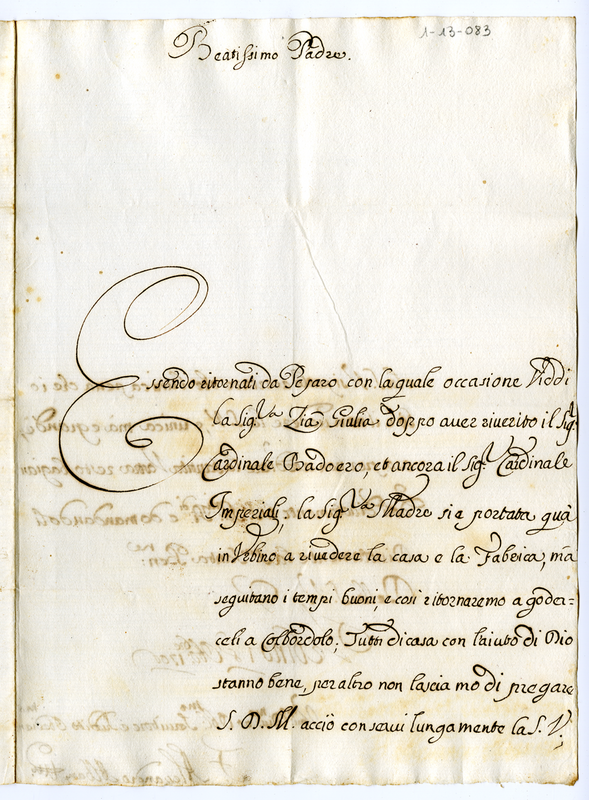 1-13-083
Beatissimo Padre.
Essendo ritornati da Pesaro con la quale occasione Viddi
la Sig.ra Zia Giulia, doppo aver riverito il Sig.r
Cardinale Badoero, et ancora il Sig.r Cardinale
Imperiali, la Sig.ra Madre si è portata quà
in Urbino a rivedere la casa e la Fabrica, mà
seguitano i tempi buoni, e così ritornaremo a goder=
celi a Colbordolo; Tutti di casa con l'aiuto di Dio
stanno bene, per altro non lasciamo di pregare
S. D. M. acciò conservi lungamente la S. V.;